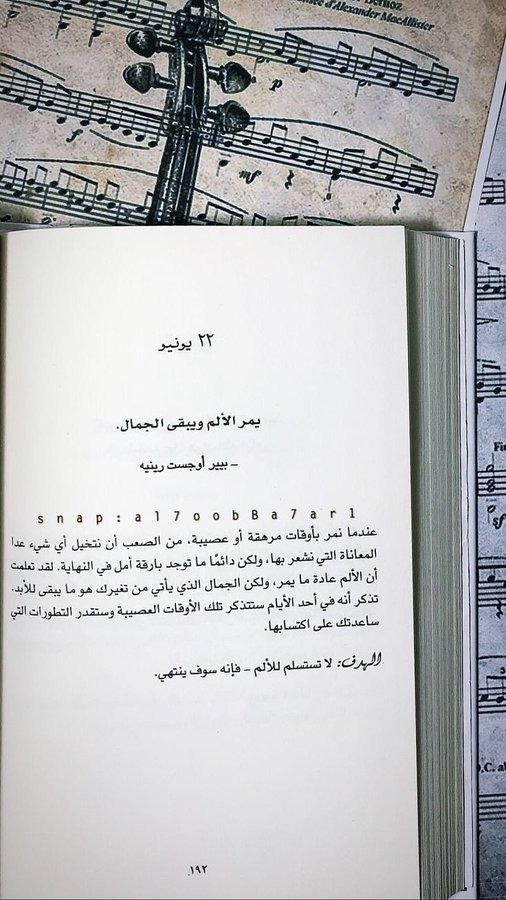 d'Alexander MacAllister
٢٢ يونيو
يمر الألم ويبقى الجمال.
– بيير أوجست رينيه
snap:al7oobBa7ar1
عندما نمر بأوقات مرهقة أو عصيبة، من الصعب أن نتخيل أي شيء عدا
المعاناة التي نشعر بها، ولكن دائمًا ما توجد بارقة أمل في النهاية. لقد تعلمت
أن الألم عادة ما يمر، ولكن الجمال الذي يأتي من تغيرك هو ما يبقى للأبد.
تذكر أنه في أحد الأيام ستتذكر تلك الأوقات العصيبة وستقدر التطورات التي
ساعدتك على اكتسابها.
الهدف: لا تستسلم للألم – فإنه سوف ينتهي.
١٩٢